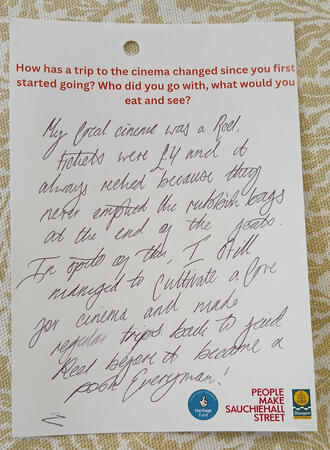 How has a trip to the cinema changed since you first
started going? Who did you go with, what would you
eat and see?
My local cinema was a Reel.
Tickets were £4 and it
always reeked because they
never emptied the rubbish bags
at the end of the seats.
In spite of this, I still
managed to cultivate a love
for cinema and made
regular trips back to said
Reel before it became a
posh Everyman!
Heritage
Fund
PEOPLE
MAKE
SAUCHIEHALL
STREET
Glasgow